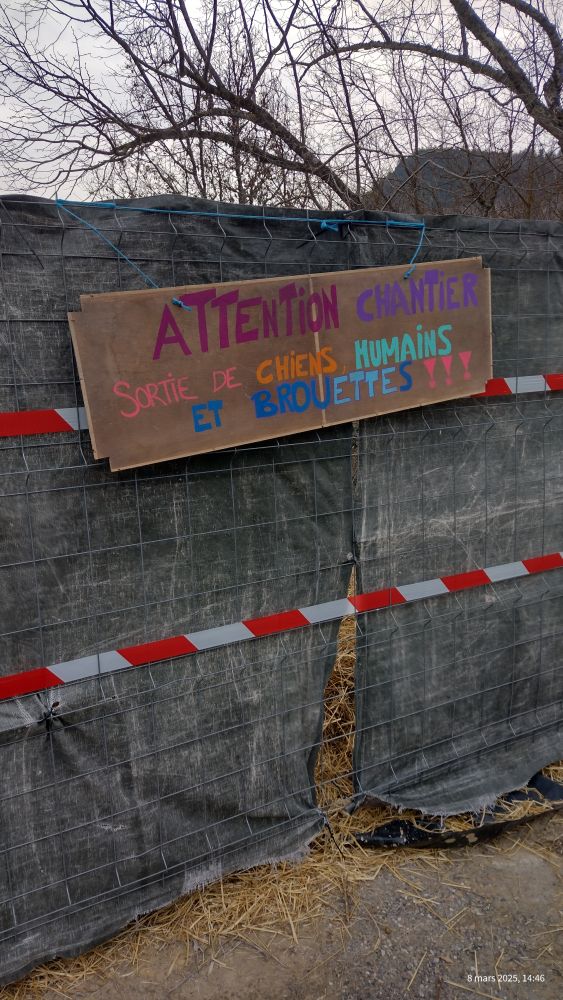 ATTENTION CHANTIER
SORTIE DE CHIENS, HUMAINS
ET BROUETTES !!!
8 mars 2025, 14:46